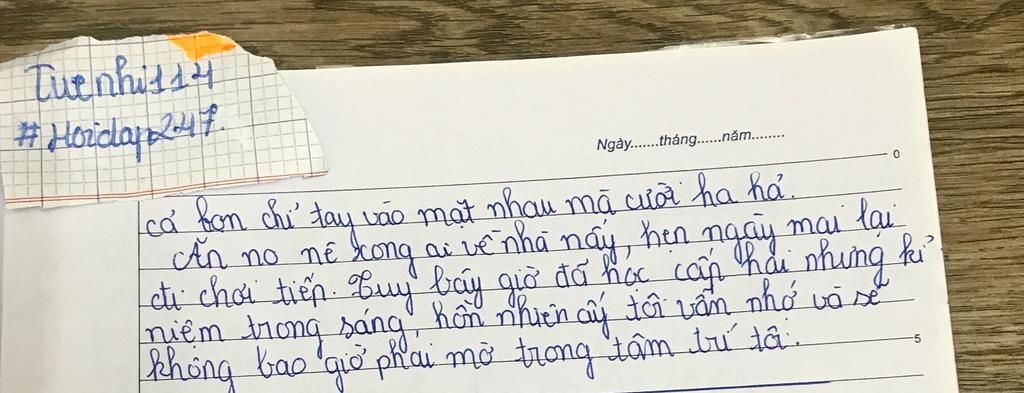 Tuenhi114
#Hoidap247.
Ngày.......tháng......năm........
0
cả bọn chỉ tay vào mặt nhau mà cười ha hả.
Ăn no nê xong ai về nhà nấy, hẹn ngày mai lại
đi chơi tiếp. Tuy bây giờ đã học cấp hai nhưng kỉ
niệm trong sáng, hồn nhiên ấy tôi vẫn nhớ và sẽ
không bao giờ phai mờ trong tâm trí tôi.
5